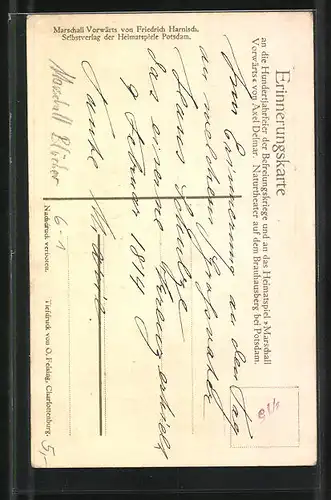 Marschall Vorwärts von Friedrich Harnisch.
Selbstverlag der Heimatspiel Potsdam.
Erinnerungskarte
an die Hundertjahrfeier der Befreiungskriege und an das Heimatspiel »Marschall
Vorwärts« von Axel Delmar. Naturtheater auf dem Brauhausberg bei Potsdam.
Zur Erinnerung an den Tag
an welchem Großvater
Schulze
das eiserne Kreuz erhielt
9 Februar 1814
Tante
Marschall Blücher
6-1
Nachdruck verboten.
Tiefdruck von O. Felsing, Charlottenburg.
5,-